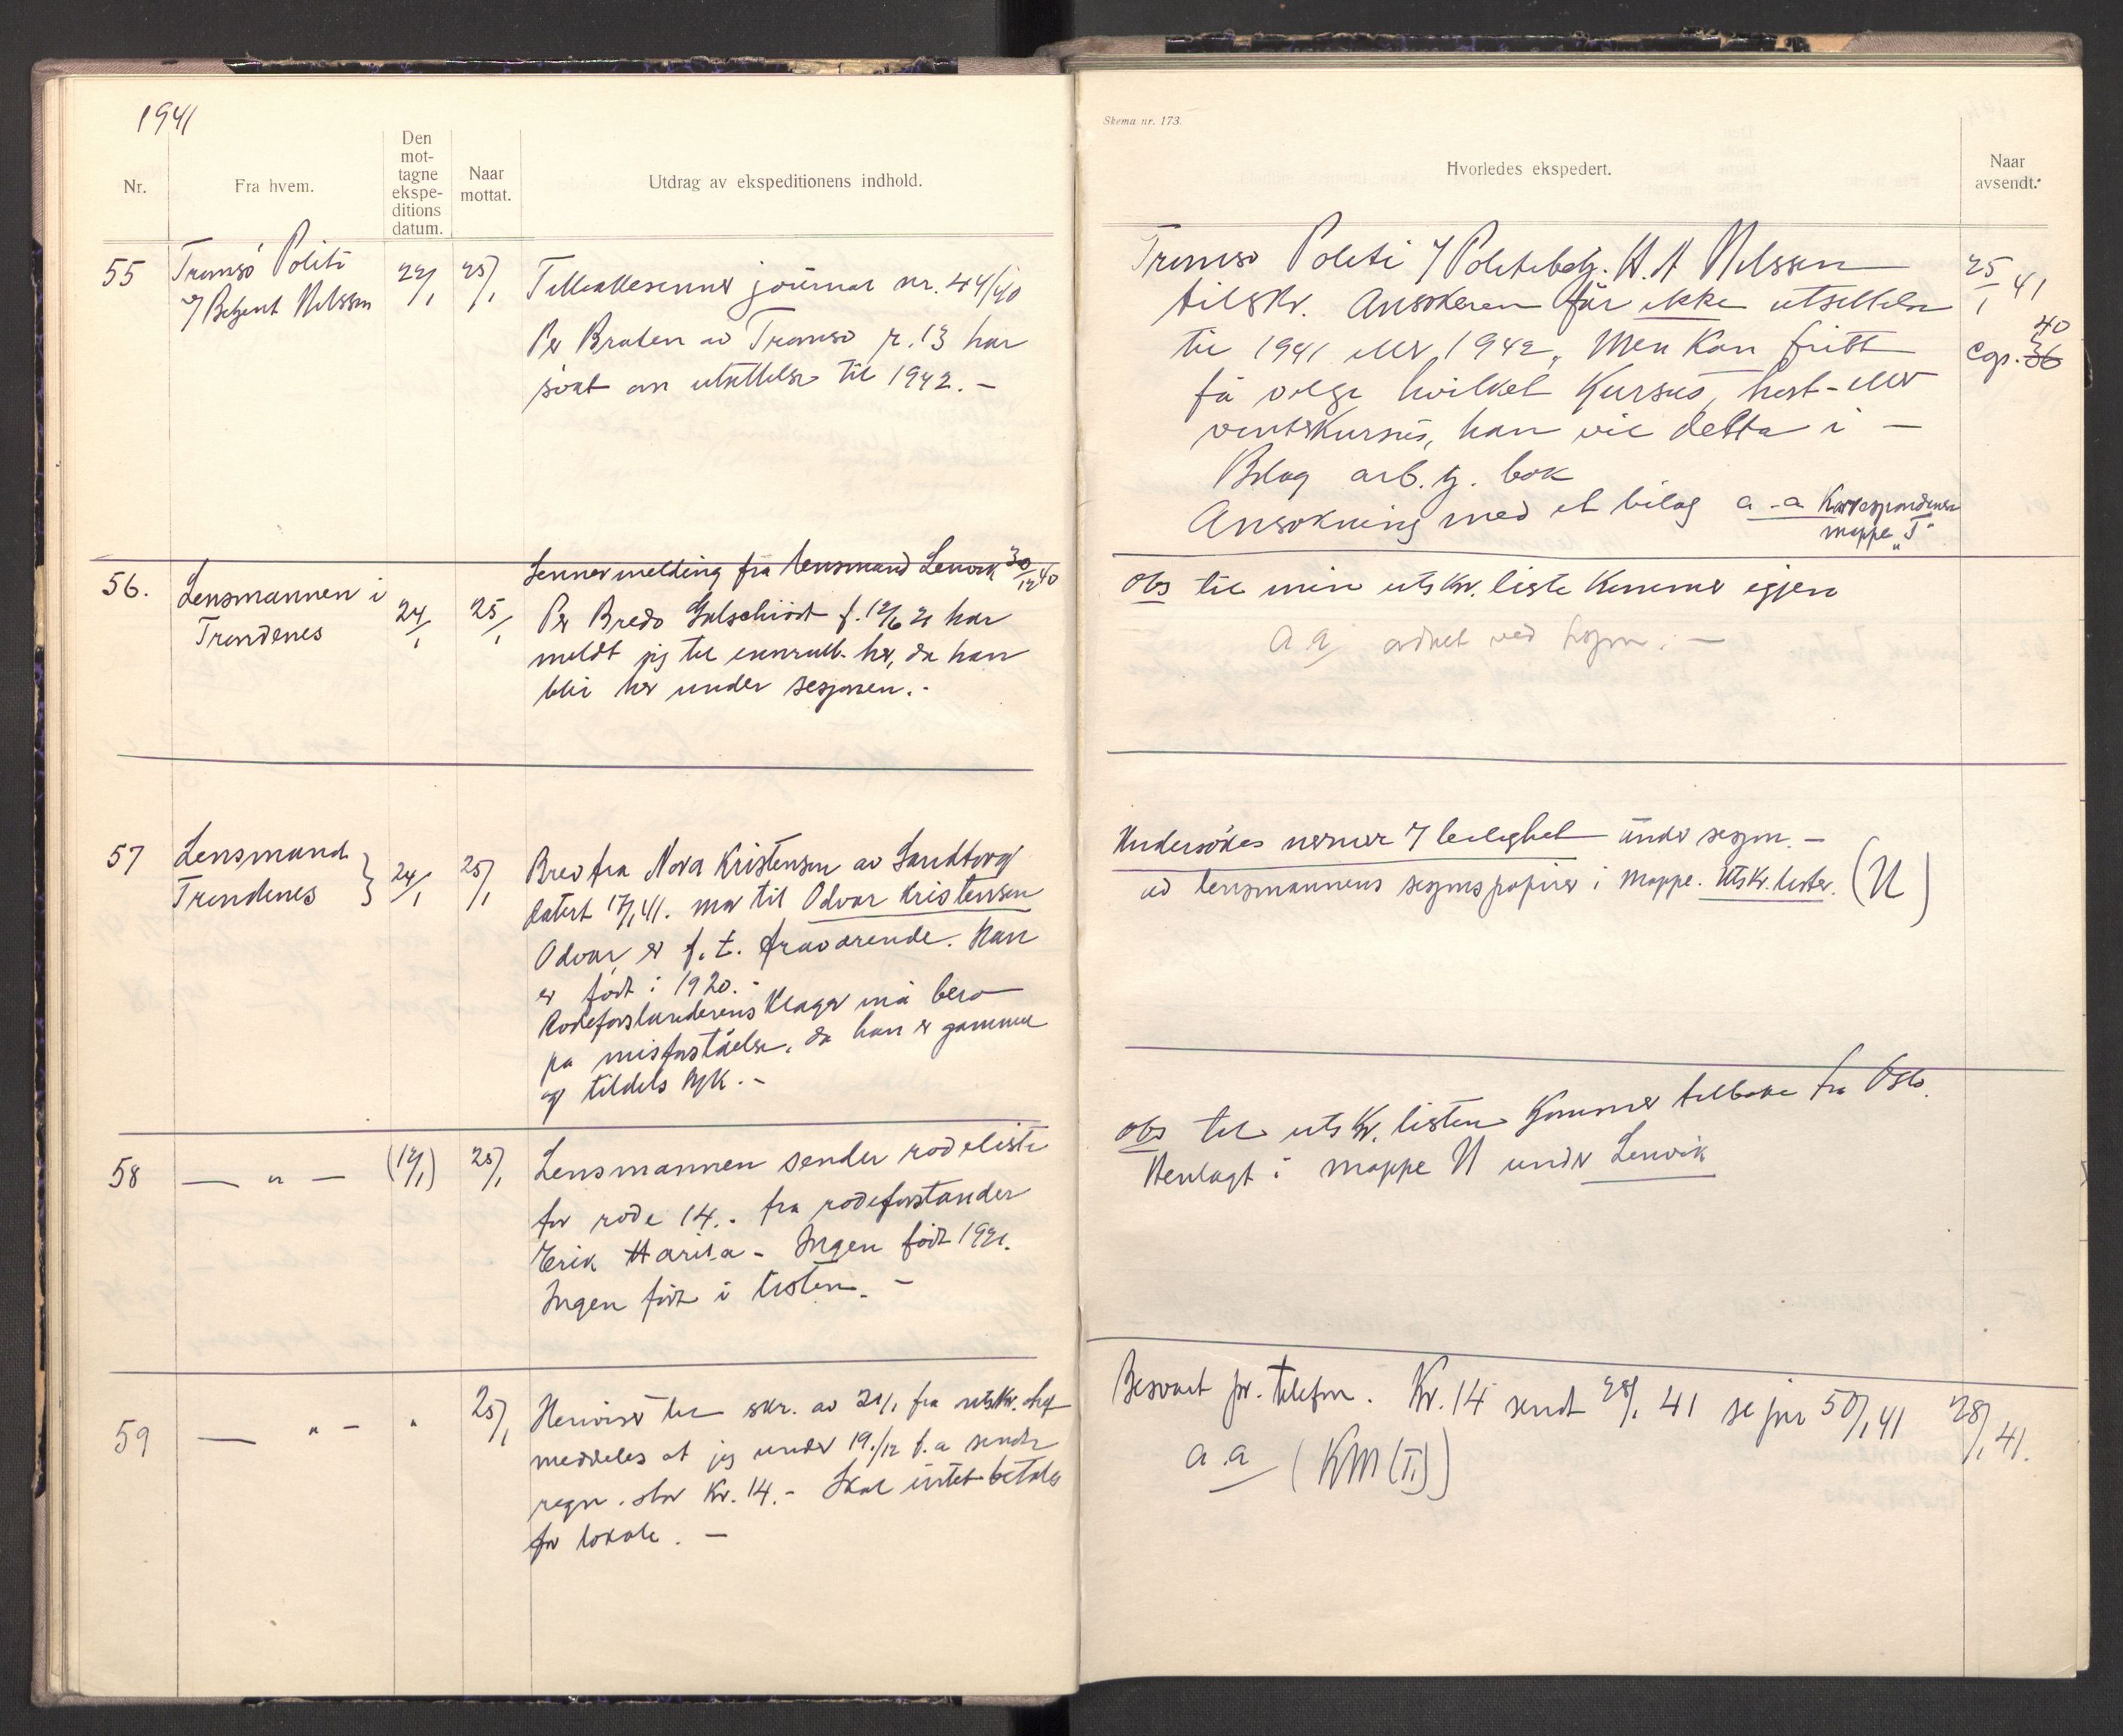 1941
Nr.
Fra hvem.
Den
mot-
tagne
ekspe-
ditions
datum.
Naar
mottat.
Utdrag av ekspeditionens indhold.
55
Tromsö Politi
v/ Betjent Nilssen
22/1
25/1
journal nr. 44/40
Per Braten av Tromsö r. 13 har
sökt om utsettelse til 1942. -
56.
Lensmannen i
Trondenes
24/1
25/1
Sennermelding fra lensmand Lenvik 30/12 40
Per Bredo f. 12/6 21 har
meldt sig til innrull. her, da han
blir her under sesjonen. -
57
Lensmand
Trondenes
24/1
25/1
Brev fra Nora Kristensen av Sandtorg
datert 17/1 41. mor til Odvar Kristensen
Odvar er f. t. fraværende. Han
er født i 1920. -
Rodeforstanderens klager må bero
på misforståelse, da han er gammel
og tildels syk. -
58
— " —
(12/1)
25/1
Lensmannen sender rodeliste
for rode 14. - fra rodeforstander
Erik Harila - Ingen födt 1921.
Ingen fört i listen. -
59
— " — "
25/1
Henviser til skr. av 21/1 fra utskr. chef
meddeles at jeg under 19./12 f. a sendte
regn. stor Kr. 14. - Skal intet betales
for lokale. —
Skema nr. 173.
Hvorledes ekspedert.
Naar
avsendt.
Tromsö Politi v/ Politibetj. H. A Nilssen
tilskr. Ansökeren får ikke utsettelse
til 1941 eller 1942, Men kan fritt
få velge hvilket Kursus, höst- eller
vinterkursus, han vil delta i —
Bilag arb. tj. bok
Ansökning med et bilag a - a Korrespondense
mappe "T"
25/1 41
40
36
Obs til min utskr. liste kommer igjen
a a ordnet ved sesjon. —
Undersökes nærmer v/ leilighet under sesjon. —
ad lensmannens sesjonspapirer i mappe. Utskr. lister. (U)
Obs til utskr. listen kommer tilbake fra Oslo.
Henlagt i mappe U under Lenvik
Besvart pr. telefon. Kr. 14 sendt 28/1 41 se jnr 50/1 41
28/1 41.
a. a (KM (II))